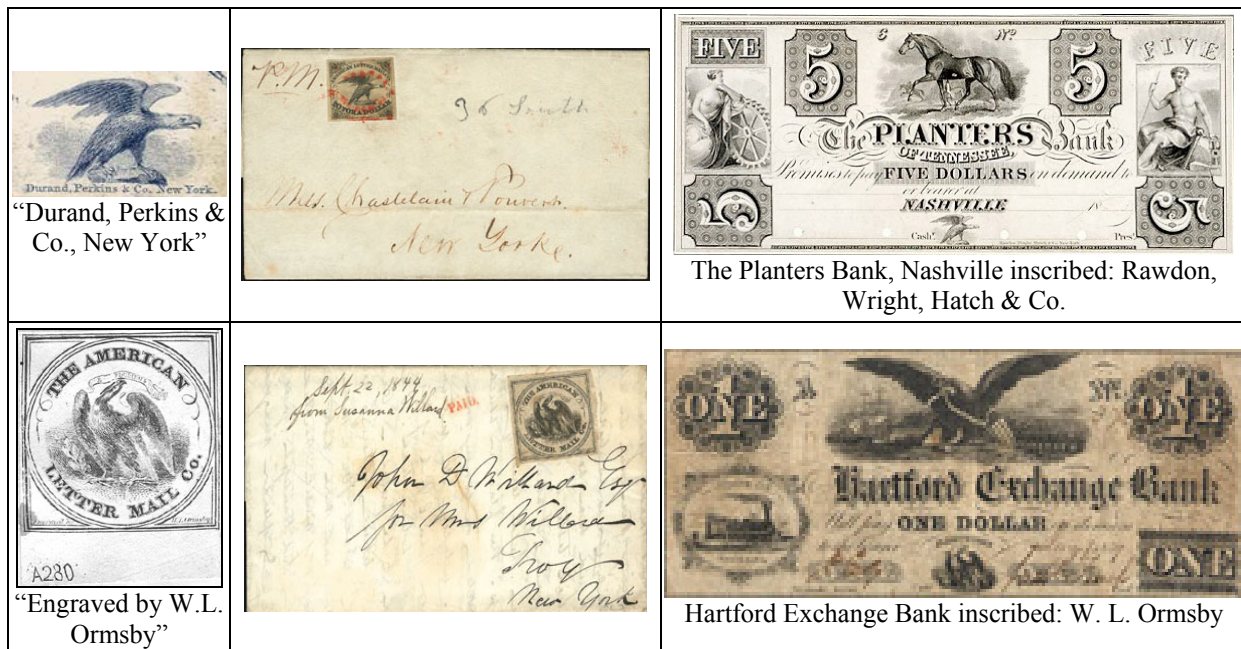 Durand, Perkins & Co. New York.
“Durand, Perkins &
Co., New York”
P.M.
36 South
New Yorke
FIVE
5
5
FIVE
6
No
The PLANTERS Bank
OF TENNESSEE,
Promises to pay FIVE DOLLARS on demand to
or bearer at
NASHVILLE
18
5
5
Cashr.
Prest.
The Planters Bank, Nashville inscribed: Rawdon,
Wright, Hatch & Co.
THE AMERICAN
LETTER MAIL CO.
A280
“Engraved by W.L.
Ormsby”
Sept. 22, 1844
from Susanna Willard
PAID
THE AMERICAN
LETTER MAIL CO.
John D Willard Esq
for Mrs Willard
Troy
New York
1
ONE
A
No.
1
ONE
Hartford Exchange Bank
ONE DOLLAR
ONE
Hartford Exchange Bank inscribed: W. L. Ormsby